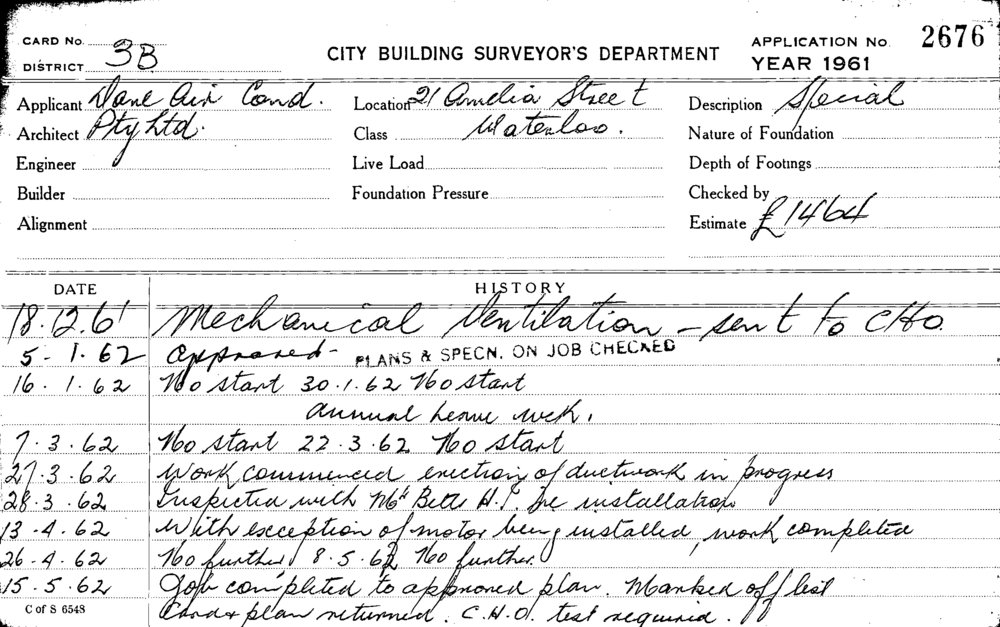 CARD No.
DISTRICT 3B
CITY BUILDING SURVEYOR'S DEPARTMENT
APPLICATION No. 2676
YEAR 1961
Applicant Dane Air Cond.
Location 21 Amelia Street
Description Special
Architect Pty Ltd.
Class Waterloo.
Nature of Foundation
Engineer
Live Load
Depth of Footings
Builder
Foundation Pressure
Checked by
Alignment
Estimate £1464
DATE HISTORY
18.12.61 Mechanical Ventilation – sent to CHO.
5-1.62 approved – PLANS & SPECN. ON JOB CHECKED
16.1.62 No start 30.1.62 No start
annual leave
7.3.62 No start 22.3.62 No start
27.3.62 Work commenced erection of ductwork in progress
28.3.62 Inspected with Mr installation
13-4.62 With exception of motor being installed, work completed
26.4.62 No further 8.5.62 No further.
15.5.62 Job completed to approved plan. Marked off list
C of S 6548
Card & plan returned. C.H.O. test required.